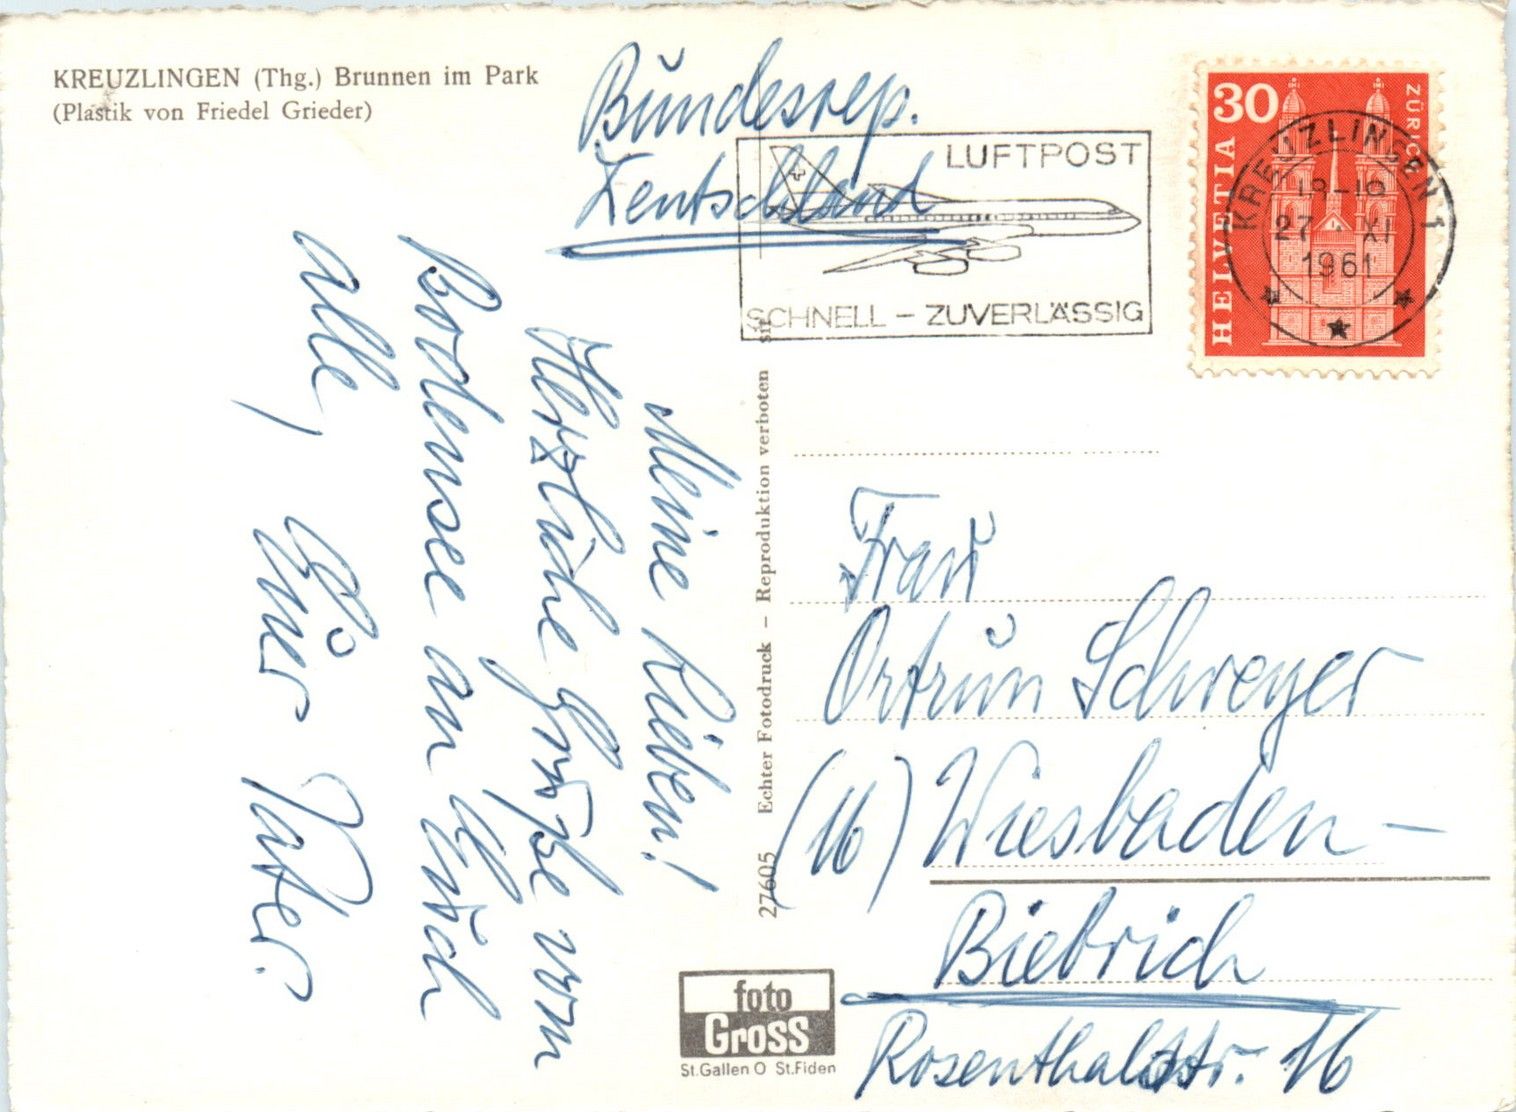 KREUZLINGEN (Thg.) Brunnen im Park
(Plastik von Friedel Grieder)
Bundesrep.
Deutschland
LUFTPOST
SCHNELL – ZUVERLÄSSIG
30
HELVETIA
ZÜRICH
KREUZLINGEN 1
18-19
27·XI
1961
Meine Lieben!
Herzliche Grüße vom
Bodensee an Euch
alle, Euer Vater.
27605 Echter Fotodruck – Reproduktion verboten
Frau
Ortrun Schreyer
(16) Wiesbaden –
Biebrich
Rosenthalstr. 16
foto
Gross
St.Gallen O St.Fiden